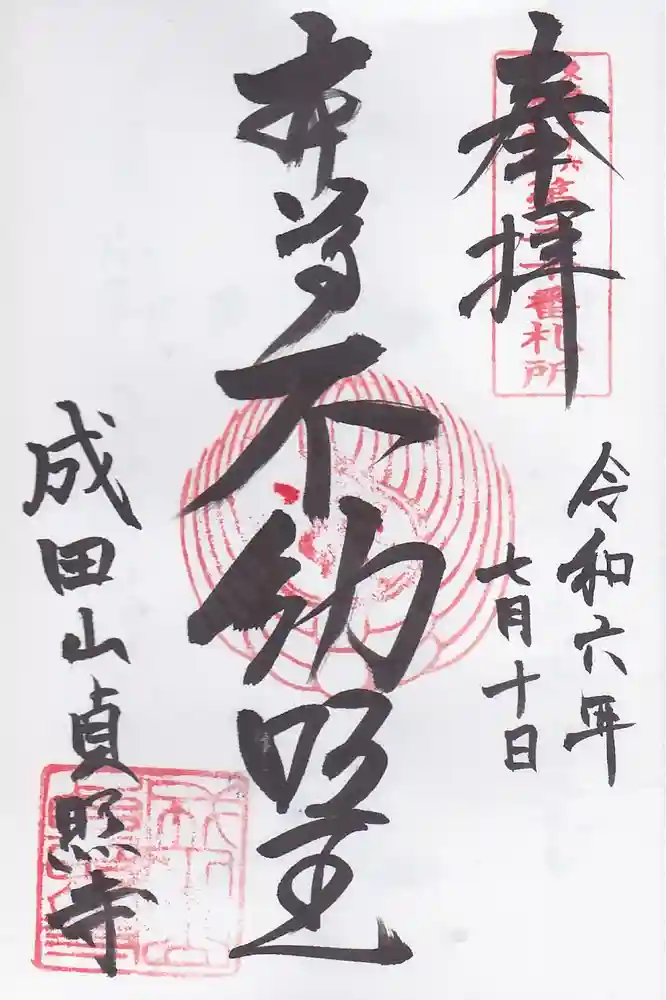 奉拝
令和六年
七月十日
本尊不動明王
成田山貞照寺
番札所